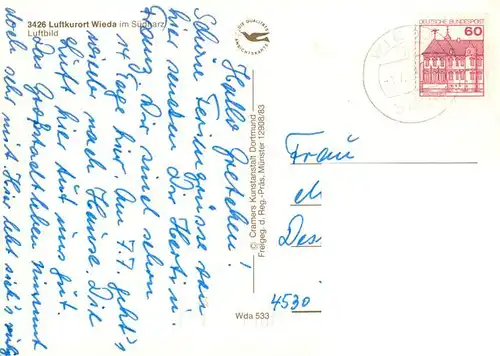 3426 Luftkurort Wieda im Südharz
Luftbild
DIE QUALITÄTS
ANSICHTSKARTE
DEUTSCHE BUNDESPOST
60
Hallo Gretchen!
Schöne Feriengrüsse von
hier senden Dir Herta u.
Franz. Wir sind schon
14 Tage hier. Am 7.7. geht's
wieder nach Hause. Die
Luft hier tut uns gut.
Das Großstadtleben nimmt
doch sehr mit. Hier lebt sich's
© Cramers Kunstanstalt Dortmund
Freigeg. d. Reg.-Präs. Münster 12908/83
Wda 533
Frau
Des
4530